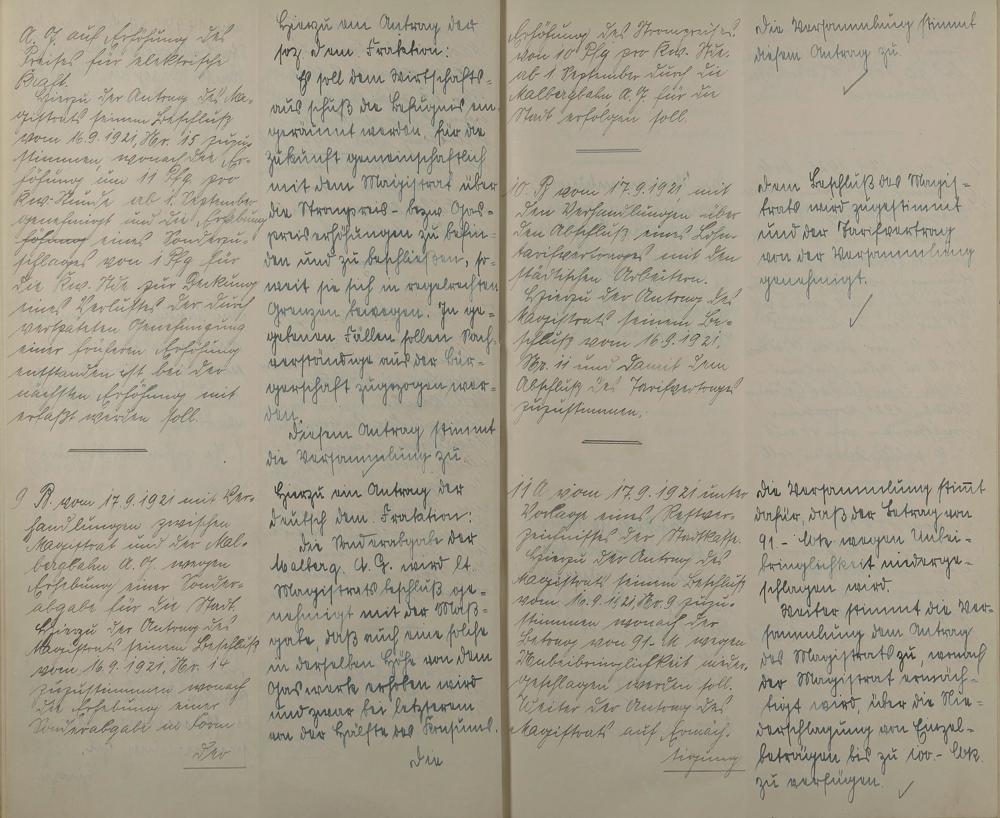 A. G. auf Erhöhung des
Preises für elektrische
Kraft.
Hierzu der Antrag des Ma-
gistrats seinem Beschluß
vom 16.9.1921, Nr. 15 zuzu-
stimmen, wonach die Er-
höhung um 11 Pfg pro
Kw. Stunde ab 1. September
genehmigt und die Erhebung
eines Sonderzu-
schlages von 1 Pfg für
die Kw. Stde zur Deckung
eines Verlustes der durch
verspäteten Genehmigung
einer früheren Erhöhung
entstanden ist bei der
nächsten Erhöhung mit
erfaßt werden soll.
9 B. vom 17.9.1921 mit Ver-
handlungen zwischen
Magistrat und der Mal-
bergbahn A. G. wegen
Erhebung einer Sonder-
abgabe für die Stadt.
Hierzu der Antrag des
Magistrats seinem Beschluß
vom 16.9.1921, Nr. 14
zuzustimmen wonach
die Erhebung einer
Sonderabgabe in Form
der
Hierzu ein Antrag der
soz. dem. Fraktion:
Es soll dem Wirtschafts-
ausschuß die Befugnis ein-
geräumt werden, für die
Zukunft gemeinschaftlich
mit dem Magistrat über
die Strompreis- bezw. Gas-
preiserhöhungen zu befin-
den und zu beschließen, so-
weit sie sich in regelrechten
Grenzen bewegen. In ge-
gebenen Fällen sollen Sach-
verständige aus der Bür-
gerschaft zugezogen wer-
den.
Diesem Antrag stimmt
die Versammlung zu.
Hierzu ein Antrag der
deutsch dem. Fraktion:
Die Sonderabgabe der
Malberg. A. G. wird lt.
Magistratsbeschluß ge-
nehmigt mit der Maß-
gabe, daß auch eine solche
in derselben Höhe von dem
Gaswerk erhoben wird
und zwar bei letzterem
von der Hälfte des Konsums.
Die
Erhöhung des Strompreises
von 10 Pfg pro Kw. Stde.
ab 1 September durch die
Malbergbahn A. G. für die
Stadt erfolgen soll.
10. B vom 17.9.1921, mit
den Verhandlungen über
den Abschluß eines Lohn-
tarifvertrages mit den
städtischen Arbeitern.
Hierzu der Antrag des
Magistrats seinem Be-
schluß vom 16.9.1921,
Nr. 11 und damit dem
Abschluß des Tarifvertrages
zuzustimmen.
11 A vom 17.9.1921 unter
Vorlage eines Restver-
zeichnisses der Stadtkasse.
Hierzu der Antrag des
Magistrats seinem Beschluß
vom 16.9.1921, Nr. 9 zuzu-
stimmen wonach der
Betrag von 91.- M wegen
Unbeibringlichkeit nieder-
geschlagen werden soll.
Weiter der Antrag des
Magistrats auf Ermäch-
tigung
Die Versammlung stimmt
diesem Antrag zu.
Dem Beschluß des Magis-
trats wird zugestimmt
und der Tarifvertrag
von der Versammlung
genehmigt.
Die Versammlung stimmt
dafür, daß der Betrag von
91.- Mk wegen Unbei-
bringlichkeit niederge-
schlagen wird.
Weiter stimmt die Ver-
sammlung dem Antrag
des Magistrats zu, wonach
der Magistrat ermäch-
tigt wird, über die Nie-
derschlagung von Einzel-
beträgen bis zu 100.- Mk.
zu verfügen.